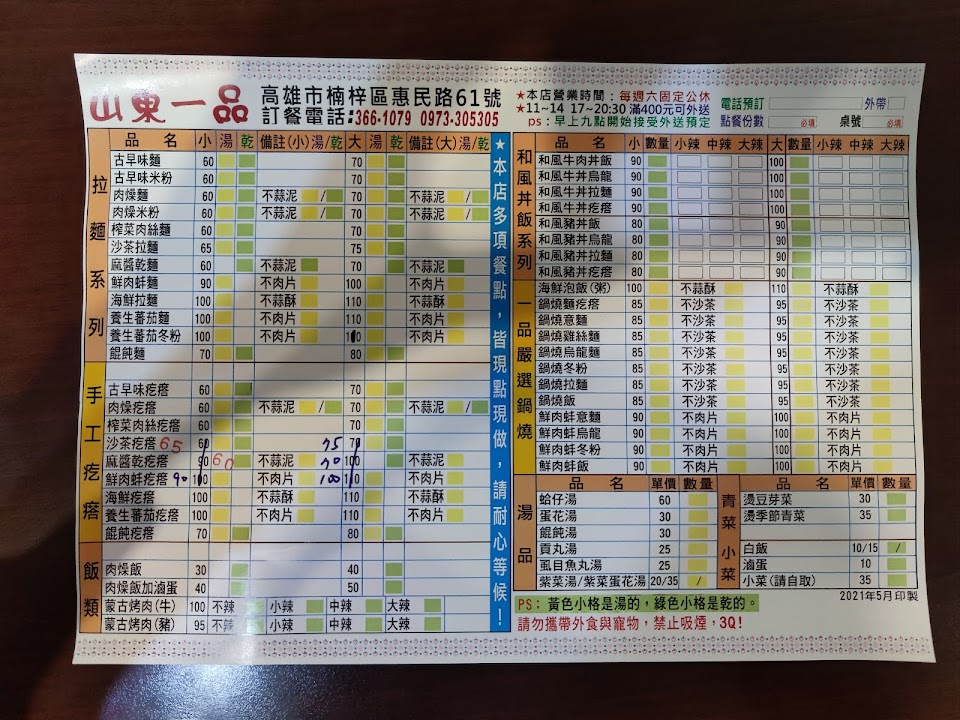 山東一品
高雄市楠梓區惠民路61號
訂餐電話:366-1079 0973-305305
★本店營業時間：每週六固定公休
★11~14 17~20:30 滿400元可外送
ps：早上九點開始接受外送預定
電話預訂 外帶
點餐份數 必填 桌號 必填
拉麵系列
品名 小 湯 乾 備註(小)湯/乾 大 湯 乾 備註(大)湯/乾
古早味麵 60 70
古早味米粉 60 70
肉燥麵 60 不蒜泥 / 70 不蒜泥 /
肉燥米粉 60 不蒜泥 / 70 不蒜泥 /
榨菜肉絲麵 60 70
沙茶拉麵 65 75
麻醬乾麵 60 不蒜泥 70 不蒜泥
鮮肉蚌麵 90 不肉片 100 不肉片
海鮮拉麵 100 不蒜酥 110 不蒜酥
養生蕃茄麵 100 不肉片 110 不肉片
養生蕃茄冬粉 100 不肉片 不肉片
餛飩麵 70 80
手工疙瘩
古早味疙瘩 60 70
肉燥疙瘩 60 不蒜泥 / 70 不蒜泥 /
榨菜肉絲疙瘩 60 70
沙茶疙瘩 65 60 75 70
麻醬乾疙瘩 90 60 不蒜泥 70 100 不蒜泥
鮮肉蚌疙瘩 90 100 不肉片 100 不肉片
海鮮疙瘩 100 不蒜酥 110 不蒜酥
養生蕃茄疙瘩 100 不肉片 110 不肉片
餛飩疙瘩 70 80
飯類
肉燥飯 30 40
肉燥飯加滷蛋 40 50
蒙古烤肉(牛) 100 不辣 小辣 中辣 大辣
蒙古烤肉(豬) 95 不辣 小辣 中辣 大辣
★本店多項餐點，皆現點現做，請耐心等候！
和風丼飯系列
品名 小 數量 小辣 中辣 大辣 大 數量 小辣 中辣 大辣
和風牛肉丼飯 90 100
和風牛丼烏龍 90 100
和風牛丼拉麵 90 100
和風牛丼疙瘩 90 100
和風豬丼飯 80 90
和風豬丼烏龍 80 90
和風豬丼拉麵 80 90
和風豬丼疙瘩 80 90
一品嚴選鍋燒
海鮮泡飯(粥) 100 不蒜酥 110 不蒜酥
鍋燒麵疙瘩 85 不沙茶 95 不沙茶
鍋燒意麵 85 不沙茶 95 不沙茶
鍋燒雞絲麵 85 不沙茶 95 不沙茶
鍋燒烏龍麵 85 不沙茶 95 不沙茶
鍋燒冬粉 85 不沙茶 95 不沙茶
鍋燒拉麵 85 不沙茶 95 不沙茶
鍋燒飯 85 不沙茶 95 不沙茶
鮮肉蚌意麵 90 不肉片 100 不肉片
鮮肉蚌烏龍 90 不肉片 100 不肉片
鮮肉蚌冬粉 90 不肉片 100 不肉片
鮮肉蚌飯 90 不肉片 100 不肉片
湯品
品名 單價 數量
蛤仔湯 60
蛋花湯 30
餛飩湯 30
貢丸湯 25
虱目魚丸湯 25
紫菜湯/紫菜蛋花湯 20/35 /
青菜小菜
品名 單價 數量
燙豆芽菜 30
燙季節青菜 35
白飯 10/15 /
滷蛋 10
小菜(請自取) 35
2021年5月印製
PS：黃色小格是湯的，綠色小格是乾的。
請勿攜帶外食與寵物，禁止吸煙，3Q!